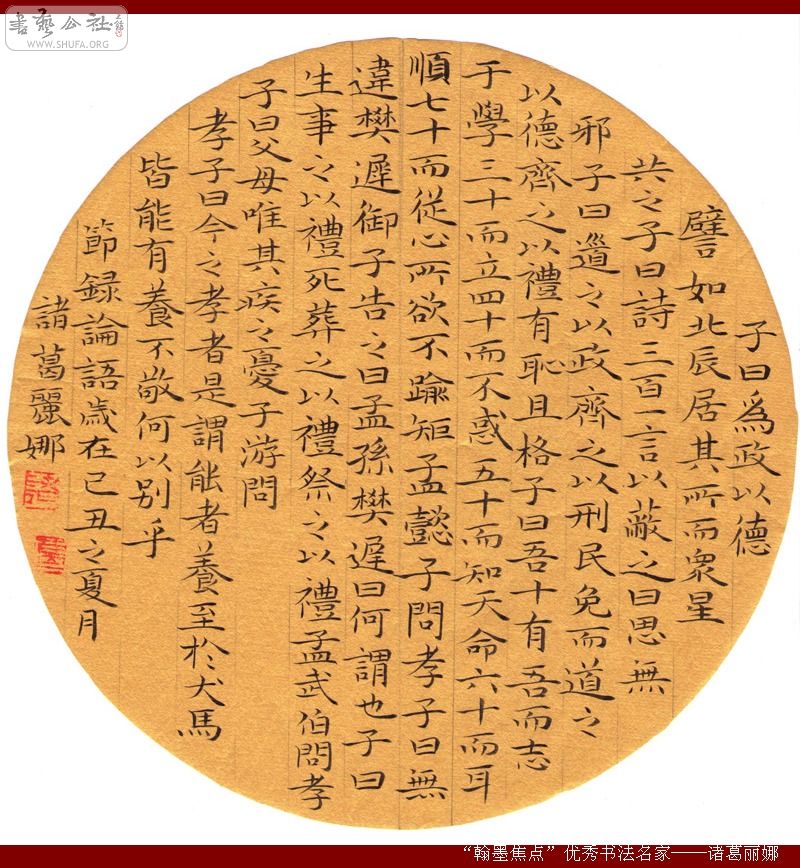 書藝公社
WWW.SHUFA.ORG
子曰爲政以德
譬如北辰居其所而衆星
共之子曰詩三百一言以蔽之曰思無
邪子曰道之以政齊之以刑民免而道之
以德齊之以禮有恥且格子曰吾十有吾而志
于學三十而立四十而不惑五十而知天命六十而耳
順七十而從心所欲不踰矩孟懿子問孝子曰無
違樊遲御子告之曰孟孫樊遲曰何謂也子曰
生事之以禮死葬之以禮祭之以禮孟武伯問孝
子曰父母唯其疾之憂子游問
孝子曰今之孝者是謂能者養至於犬馬
皆能有養不敬何以別乎
節録論語歲在己丑之夏月
諸葛麗娜
“翰墨焦点”优秀书法名家——诸葛丽娜